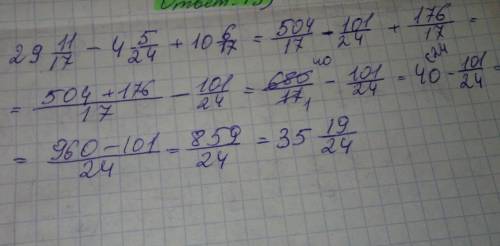 Ответ:
29 11/17 − 4 5/24 + 10 6/17 = 504/17 − 101/24 + 176/17 =
= (504+176)/17 − 101/24 = 680/17 − 101/24 = 40 − 101/24 =
= (960−101)/24 = 859/24 = 35 19/24